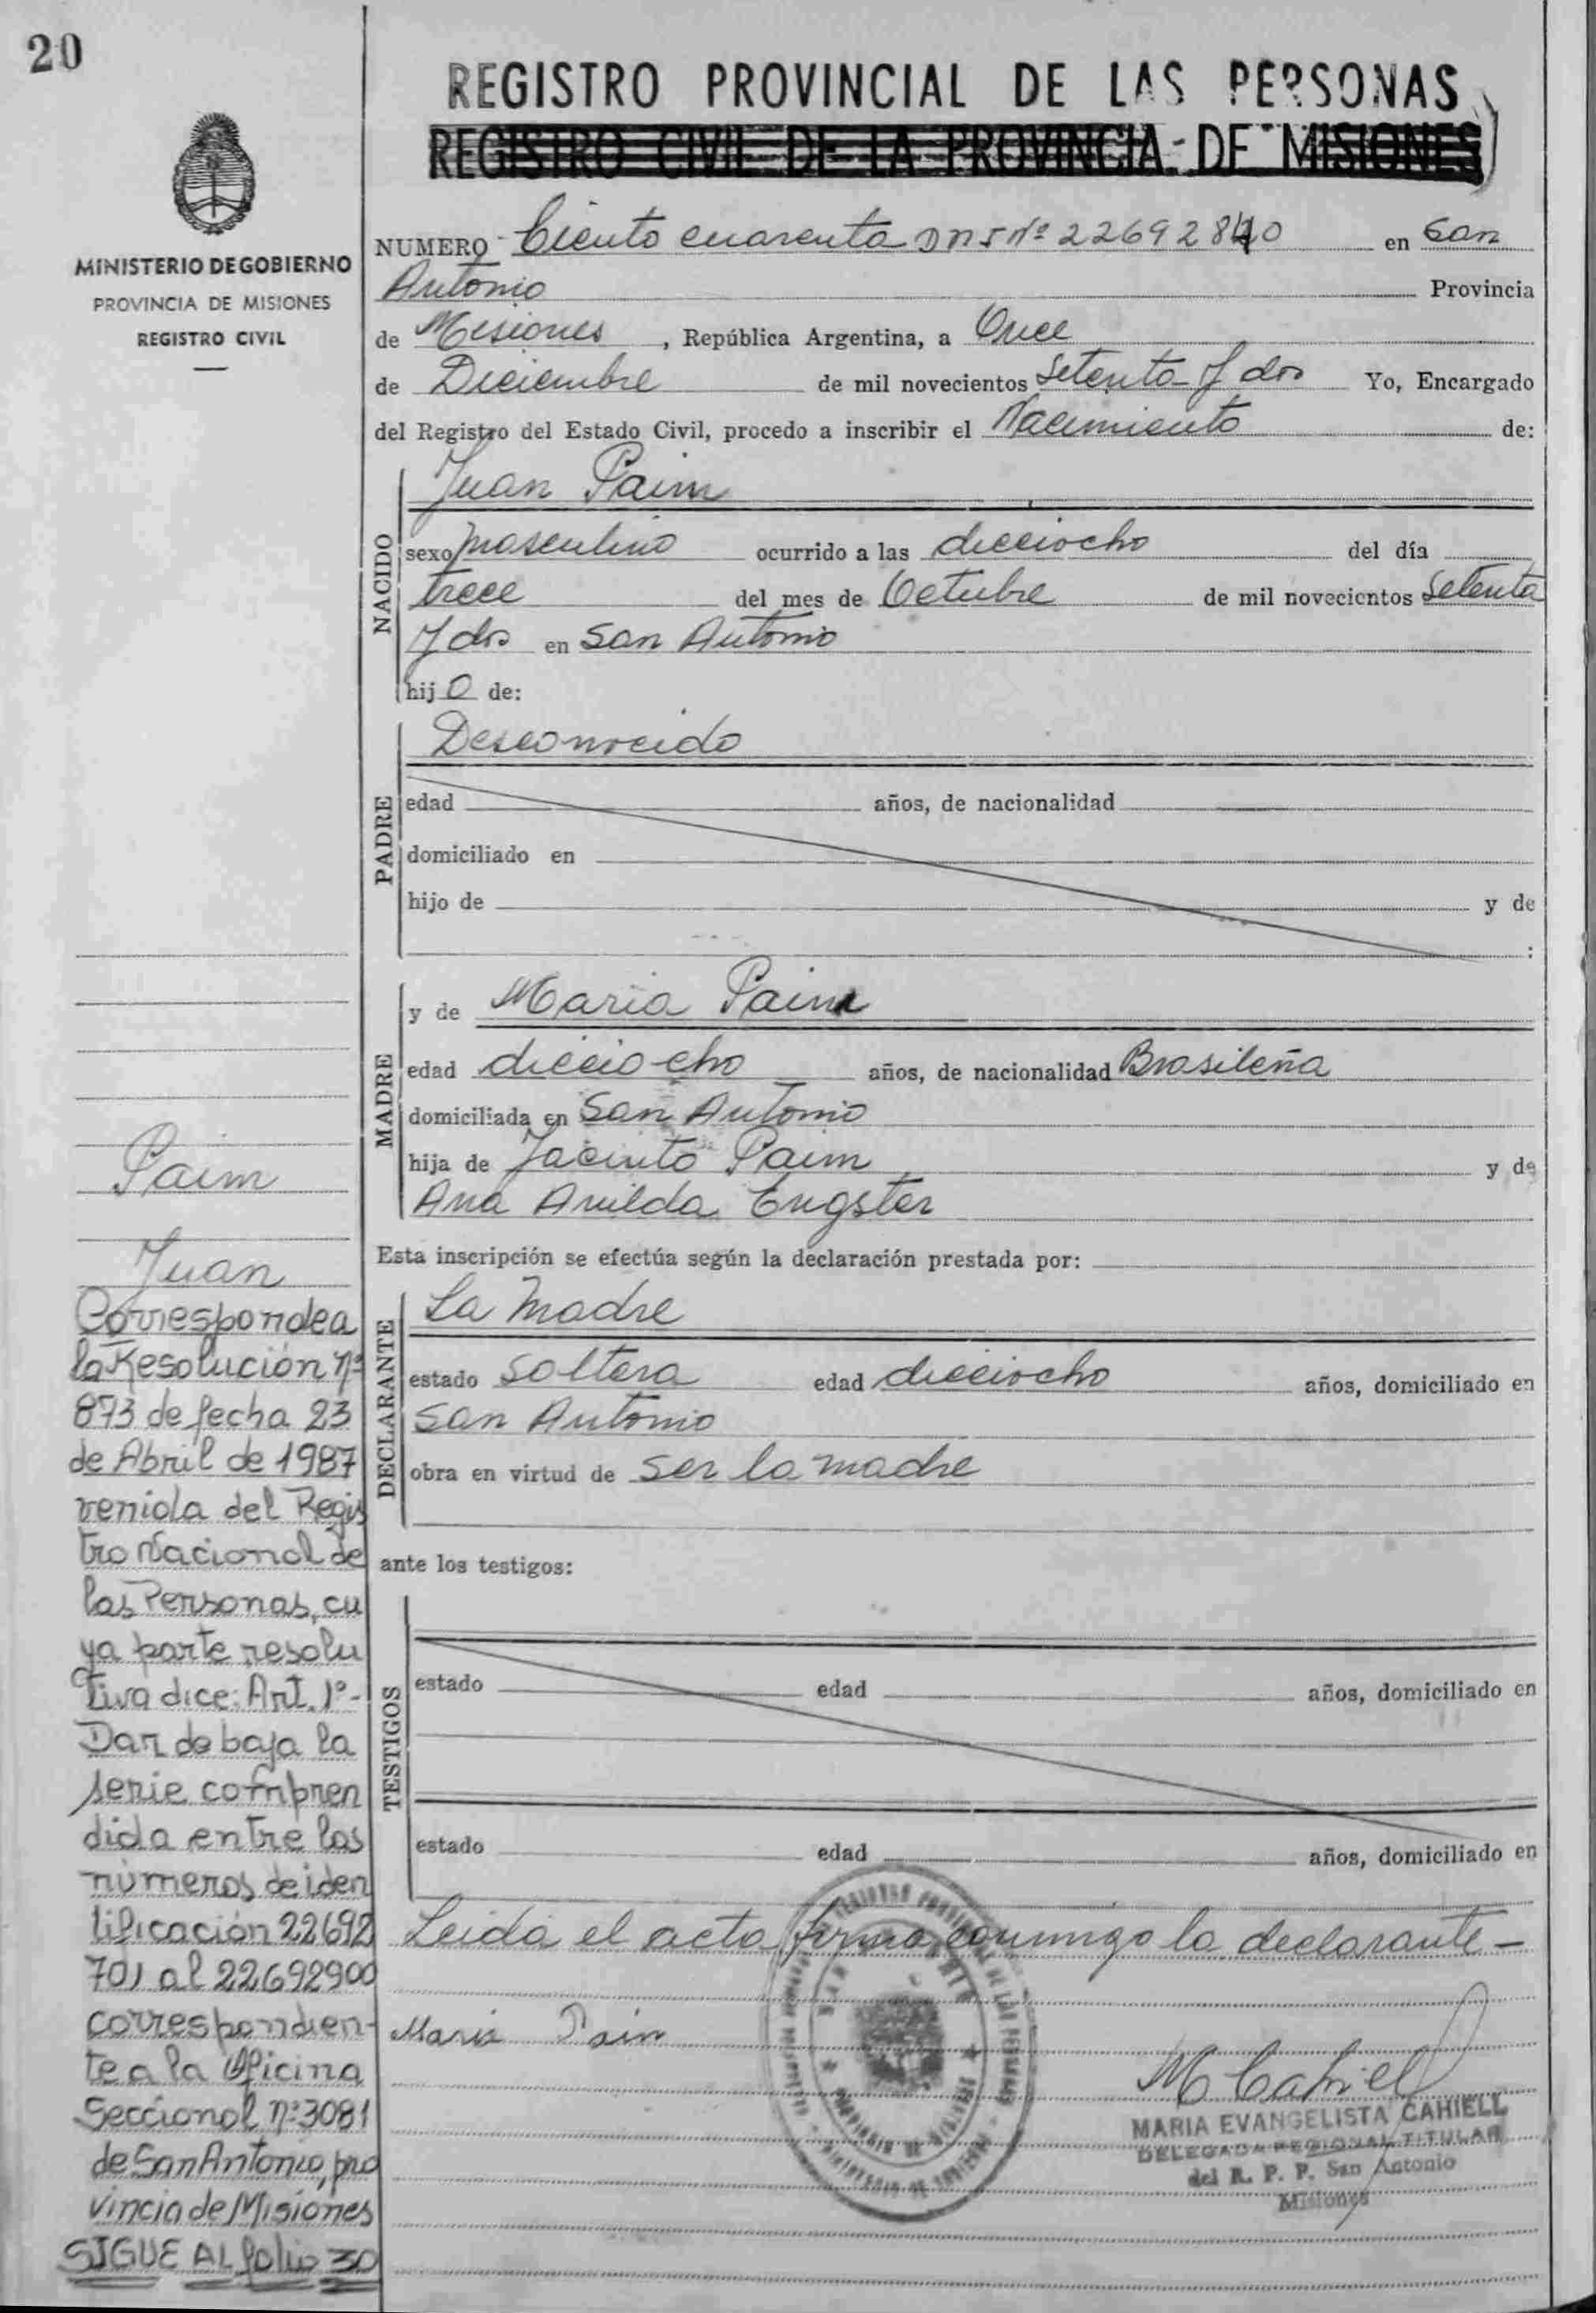 20
REGISTRO PROVINCIAL DE LAS PERSONAS
REGISTRO CIVIL DE LA PROVINCIA DE MISIONES
MINISTERIO DE GOBIERNO
PROVINCIA DE MISIONES
REGISTRO CIVIL
NUMERO Ciento cuarenta DNI Nº 22692840 en San
Antonio Provincia
de Misiones, República Argentina, a Once
de Diciembre de mil novecientos Setenta y dos Yo, Encargado
del Registro del Estado Civil, procedo a inscribir el Nacimiento de:
NACIDO
Juan Paim
sexo masculino ocurrido a las dieciocho del día
trece del mes de Octubre de mil novecientos Setenta
y dos en San Antonio
hijo de:
PADRE
Desconocido
edad años, de nacionalidad
domiciliado en
hijo de y de
:
MADRE
y de Maria Paim
edad dieciocho años, de nacionalidad Brasileña
domiciliada en San Antonio
hija de Jacinto Paim y de
Ana Anilda Engster
Esta inscripción se efectúa según la declaración prestada por:
DECLARANTE
La Madre
estado Soltera edad dieciocho años, domiciliado en
San Antonio
obra en virtud de Ser la madre
ante los testigos:
TESTIGOS
estado edad años, domiciliado en
estado edad años, domiciliado en
Leida el acta firma conmigo la declarante-
Maria Paim
M Cahiell
MARIA EVANGELISTA CAHIELL
DELEGADA REGIONAL TITULAR
del R. P. P. San Antonio
Misiones
Paim
Juan
Corresponde a
la Resolución nº
873 de fecha 23
de Abril de 1987
venida del Regis
tro Nacional de
las Personas, cu
ya parte resolu
tiva dice: Art. 1º-
Dar de baja la
serie compren
dida entre los
números de iden
tificación 22692
701 al 22692900
correspondien-
te a la Oficina
Seccional nº 3081
de San Antonio, pro
vincia de Misiones
SIGUE AL folio 30